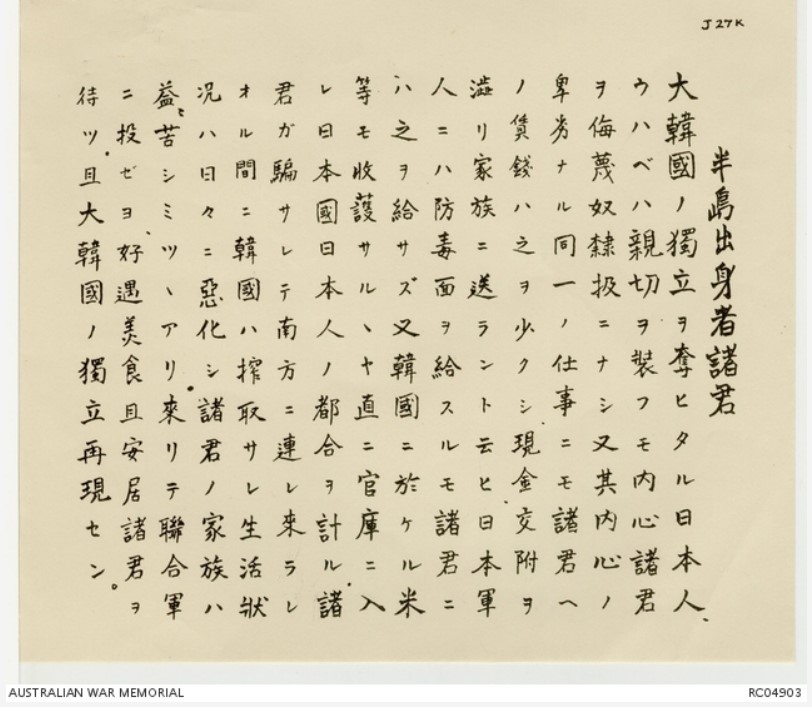 J27K
半島出身者諸君
大韓國ノ獨立ヲ奪ヒタル日本人、
ウハベハ親切ヲ装フモ内心諸君
ヲ侮蔑奴隸扱ニナシ又其内心ノ
卑劣ナル同一ノ仕事ニモ諸君ヘ
ノ賃錢ハ之ヲ少クシ現金交附ヲ
澁リ家族ニ送ラント云ヒ日本軍
人ニハ防毒面ヲ給スルモ諸君ニ
ハ之ヲ給サズ又韓國ニ於ケル米
等モ收護サルヽヤ直ニ官庫ニ入
レ日本國日本人ノ都合ヲ計ル。諸
君ガ騙サレテ南方ニ連レ来ラレ
オル間ニ韓國ハ搾取サレ生活狀
況ハ日々ニ惡化シ諸君ノ家族ハ
益〻苦シミツヽアリ。來リテ聯合軍
ニ投ゼヨ、好遇美食且安居諸君ヲ
待ツ。且大韓國ノ獨立再現セン。
AUSTRALIAN WAR MEMORIAL
RC04903